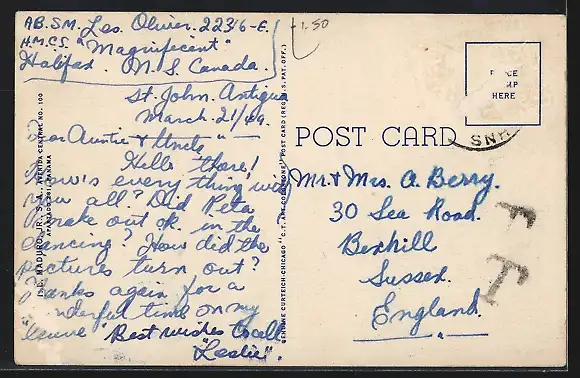 AB. S.M. Les. Oliver. 2236-E.
H.M.C.S. "Magnificent"
Halifax. N. S. Canada.
1.50
St. John. Antigua
March. 21/49.
Dear Auntie & Uncle" —
Hello there!
How's every thing with
you all? Did Peta
make out ok. in the
dancing? How did the
pictures turn out?
Thanks again for a
wonderful time on my
"leave" Best wishes to all
"Leslie".
I. L. MADURO, JR., S. A., AVENIDA CENTRAL NO. 100
PANAMA
GENUINE CURTEICH-CHICAGO "C.T. ART-COLORTONE" POST CARD (REG. U.S. PAT. OFF.)
POST CARD
PLACE
STAMP
HERE
Mr. & Mrs. A. Berry.
30 Sea Road.
Bexhill
Sussex.
England.
T
T